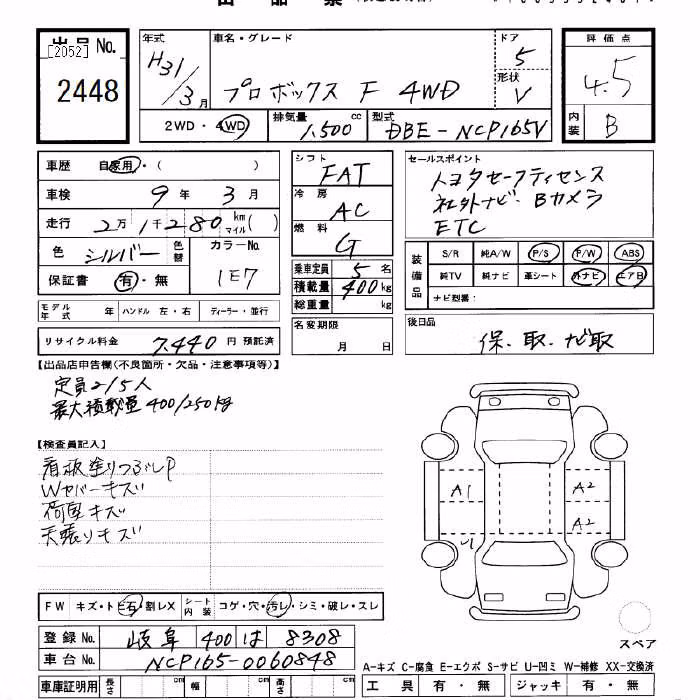 出品No.
[2052]
2448
年式
H31/3月
車名・グレード
プロボックス F 4WD
ドア
5
形状
V
評価点
4.5
内装
B
2WD・4WD
排気量
1,500 cc
型式
DBE-NCP165V
車歴 自家用・( )
車検 9年 3月
走行 2万1千280 km マイル( )
色 シルバー 色替
カラーNo.
1E7
保証書 有・無
シフト
FAT
冷房
AC
燃料
G
乗車定員 5 名
積載量 400 kg
総重量 kg
セールスポイント
トヨタセーフティセンス
社外ナビ・Bカメラ
ETC
装備品
S/R 純A/W P/S P/W ABS
純TV 純ナビ 革シート 外ナビ エアB
ナビ型番:
モデル年式 年 ハンドル 左・右 ディーラー・並行
リサイクル料金 7,440 円 預託済
名変期限
月 日
後日品
保、取、ナビ取
【出品店申告欄(不良箇所・欠品・注意事項等)】
定員2/5人
最大積載量400/250kg
【検査員記入】
看板塗りつぶしP
Wカバーキズ
荷室キズ
天張りキズ
A1
A2
A2
U1
スペア
FW キズ・ト ビ石・割レX シート内装 コゲ・穴・汚レ・シミ・破レ・スレ
登録No. 岐阜 400 は 8308
車台No. NCP165-0060848
車庫証明用 長さ cm 幅 cm 高さ cm
A-キズ C-腐食 E-エクボ S-サビ U-凹ミ W-補修 XX-交換済
工具 有・無 ジャッキ 有・無